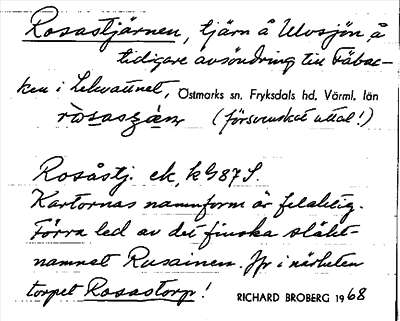 Rosastjärnen, tjärn å Ulvsjön å
tidigare avsöndring till Fäbac-
ken i Lekvattnet, Östmarks sn. Fryksdals hd. Värml. län
(försvenskat uttal!)
Rosåstj. ek, k G87S.
Kartornas namnform är felaktig.
Förra led av det finska släkt-
namnet Rusainen. Jfr i närheten
torpet Rosastorp!
RICHARD BROBERG 1968